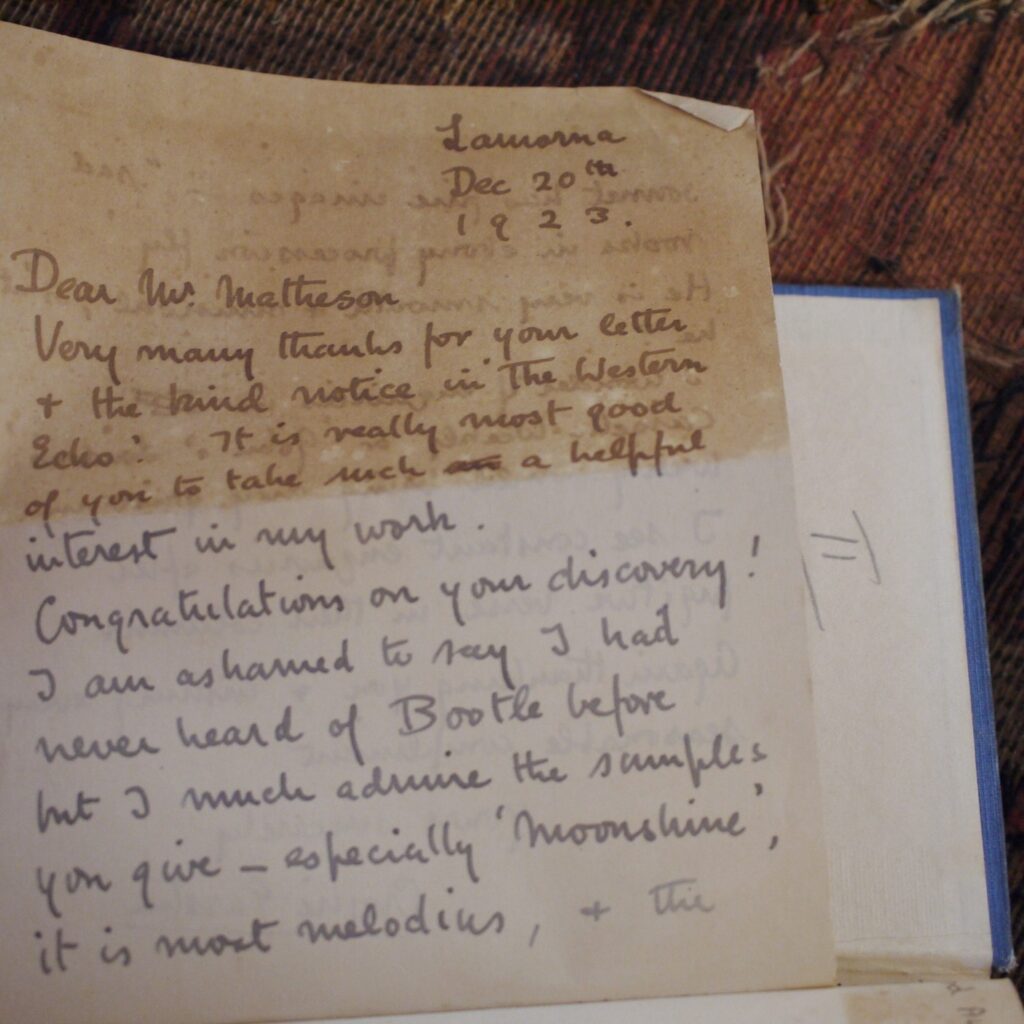 Lamorna
Dec 20th
1923.
Dear Mr. Matheson
Very many thanks for your letter
+ the kind notice in 'The Western
Echo'. It is really most good
of you to take such an a helpful
interest in my work.
Congratulations on your discovery!
I am ashamed to say I had
never heard of Bootle before
but I much admire the samples
you give – especially 'Moonshine',
it is most melodius, + the